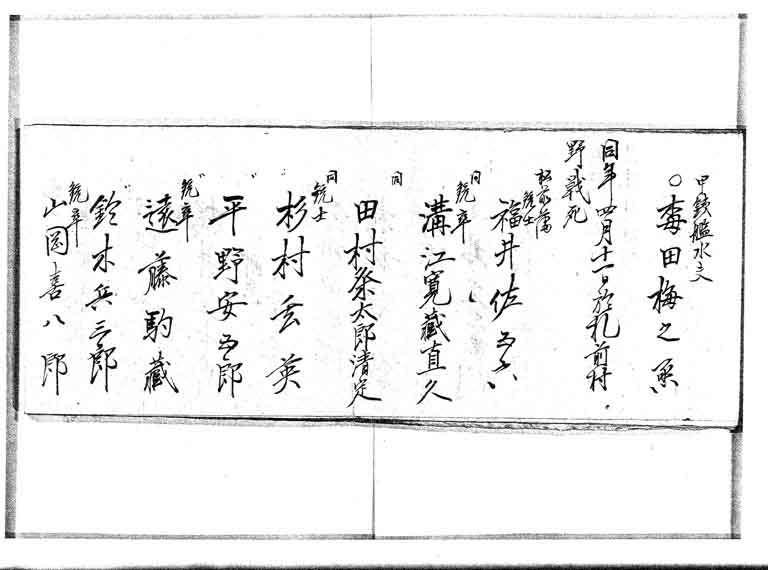 甲鉄艦水夫
○毒田梅之丞
同年四月十一日於札前村
野戦死
松前藩
銃士
福井佐五六
同
銃卒
溝江寛蔵直久
同
田村粂太郎清足
同
銃士
杉村玄英
〃
平野安五郎
〃
銃卒
遠藤駒蔵
〃
鈴木兵三郎
銃卒
山岡喜八郎